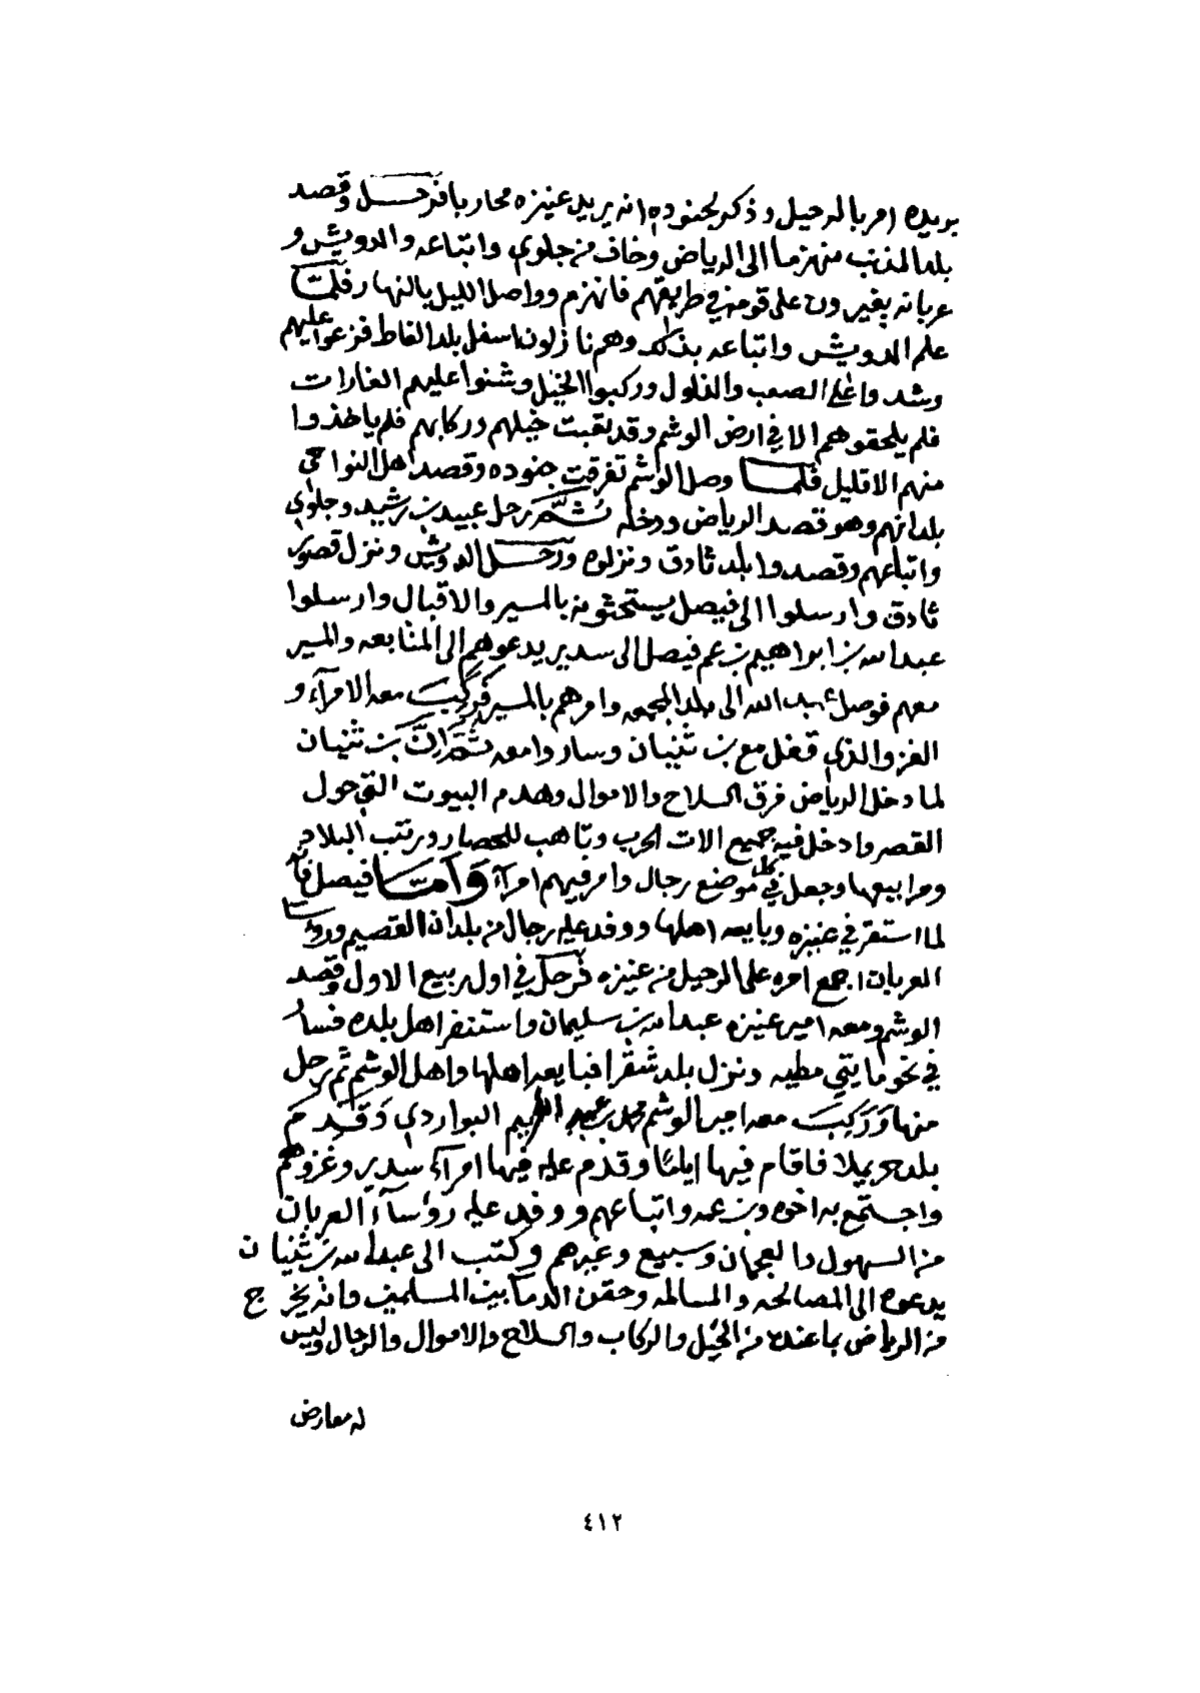 بريده امر بالرحيل وذكر لجنوده انه يريد عنيزه محاربا فرحل وقصد
بلد المذنب منهزما الى الرياض وخاف من جلوي واتباعه والدويش و
عربانه يغيرون على قومه في طريقهم فانهزم وواصل الليل بالنهار فلما
علم الدويش واتباعه بذلك وهم نازلون اسفل بلد الغاط فزعوا عليهم
وشدوا على الصعب والذلول وركبوا الخيل وشنوا عليهم الغارات
فلم يلحقوهم الا في ارض الوشم وقد تعبت خيلهم وركابهم فلم ياخذوا
منهم الا قليل فلما وصل الوشم تفرقت جنوده وقصد اهل النواحي
بلدانهم وهو قصد الرياض ودخله ثم رحل عبيد بن رشيد وجلوي
واتباعهم وقصدوا بلد ثادق ونزلوه ورحل الدويش ونزل قصور
ثادق وارسلوا الى فيصل يستحثونه بالمسير والاقبال وارسلوا
عبدالله بن ابراهيم بن عم فيصل الى سدير يدعوهم الى المتابعه والمسير
معهم فوصل عبد الله الى بلد المجمعه وامرهم بالمسير فركب معه الامرآء و
الغزو الذي قفل مع بن ثنيان وساروا معه ثم ان بن ثنيان
لما دخل الرياض فرق السلاح والاموال وهدم البيوت التي حول
القصر وادخل فيه جميع الات الحرب وتاهب للحصار ورتب البلاد
ومرابيعها وجعل في كل موضع رجال وامر فيهم امرآء وأما فيصل فانه
لما استقر في عنيزه وبايعه اهلها ووفد عليه رجال من بلدان القصيم ورؤسا
العربان اجمع امره على الرحيل من عنيزه فرحل في اول ربيع الاول وقصد
الوشم ومعه امير عنيزه عبدالله بن سليمان واستنفر اهل بلده فسار
في نحو مايتي مطيه ونزل بلد شقرا فبايعه اهلها واهل الوشم ثم رحل
منها وركب معه امير الوشم محمد بن عبد الكريم البواردي وقدم
بلد حريملا فاقام فيها اياما وقدم عليه فيها امرآء سدير وغزوهم
واجتمع به اخوه وبن عمه واتباعهم ووفد عليه رؤسآء العربان
من السهول والعجمان وسبيع وغيرهم وكتب الى عبدالله بن ثنيان
يدعوه الى المصالحه والمسالمه وحقن الدمآ بين المسلمين وانه يخرج
من الرياض بما عنده من الخيل والركاب والسلاح والاموال والرجال وليس
له معارض
٤١٢